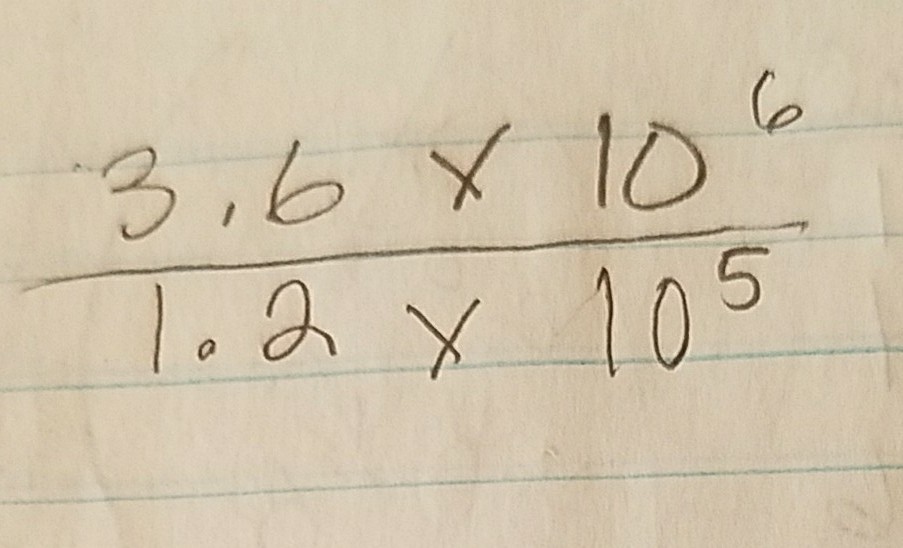 3.6 x 10⁶
1.2 x 10⁵